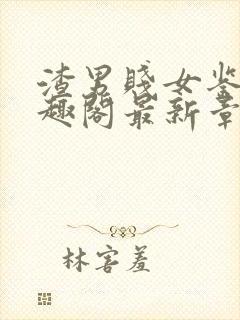 渣男贱女鉴
趣阁最新章
林害羞